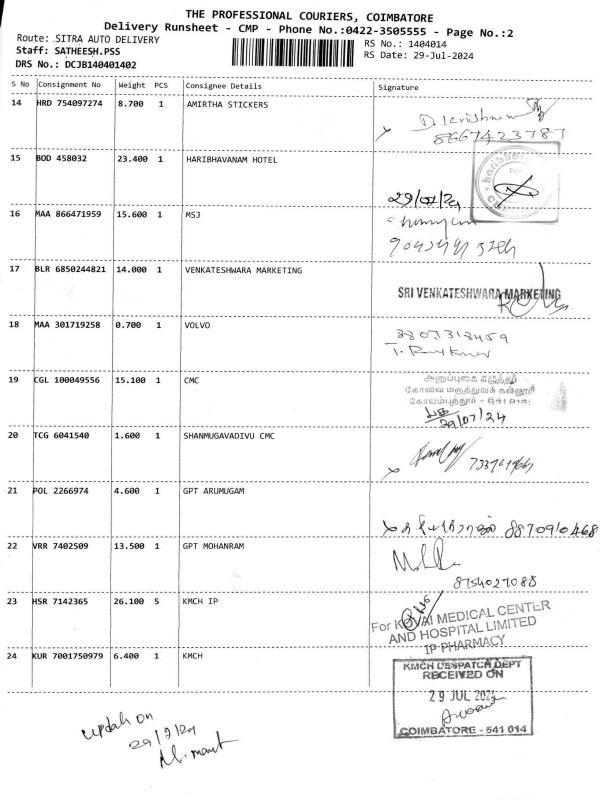 THE PROFESSIONAL COURIERS, COIMBATORE
Delivery Runsheet - CMP - Phone No.:0422-3505555 - Page No.:2
Route: .SITRA AUTO DELIVERY
RS No.: 1404014
Staff: SATHEESH.PSS
RS Date: 29-Jul-2024
DRS No.: DCJB140401402
S No Consignment No Weight PCS Consignee Details Signature
14 HRD 754097274 8.700 1 AMIRTHA STICKERS
8667423787
15 BOD 458032 23.400 1 HARIBHAVANAM HOTEL
29/07/24
16 MAA 866471959 15.600 1 MSJ
17 BLR 6850244821 14.000 1 VENKATESHWARA MARKETING
SRI VENKATESHWARA MARKETING
18 MAA 301719258 0.700 1 VOLVO
19 CGL 100049556 15.100 1 CMC
கோவை மருத்துவக் கல்லூரி
கோயம்புத்தூர் - 641 014.
29/07/24
20 TCG 6041540 1.600 1 SHANMUGAVADIVU CMC
21 POL 2266974 4.600 1 GPT ARUMUGAM
8870910468
22 VRR 7402509 13.500 1 GPT MOHANRAM
8754027088
23 HSR 7142365 26.100 5 KMCH IP
For KOVAI MEDICAL CENTER
AND HOSPITAL LIMITED
IP PHARMACY
24 KUR 7001750979 6.400 1 KMCH
KMCH DESPATCH DEPT
RECEIVED ON
29 JUL 2024
COIMBATORE - 541 014
update on
29/7/24